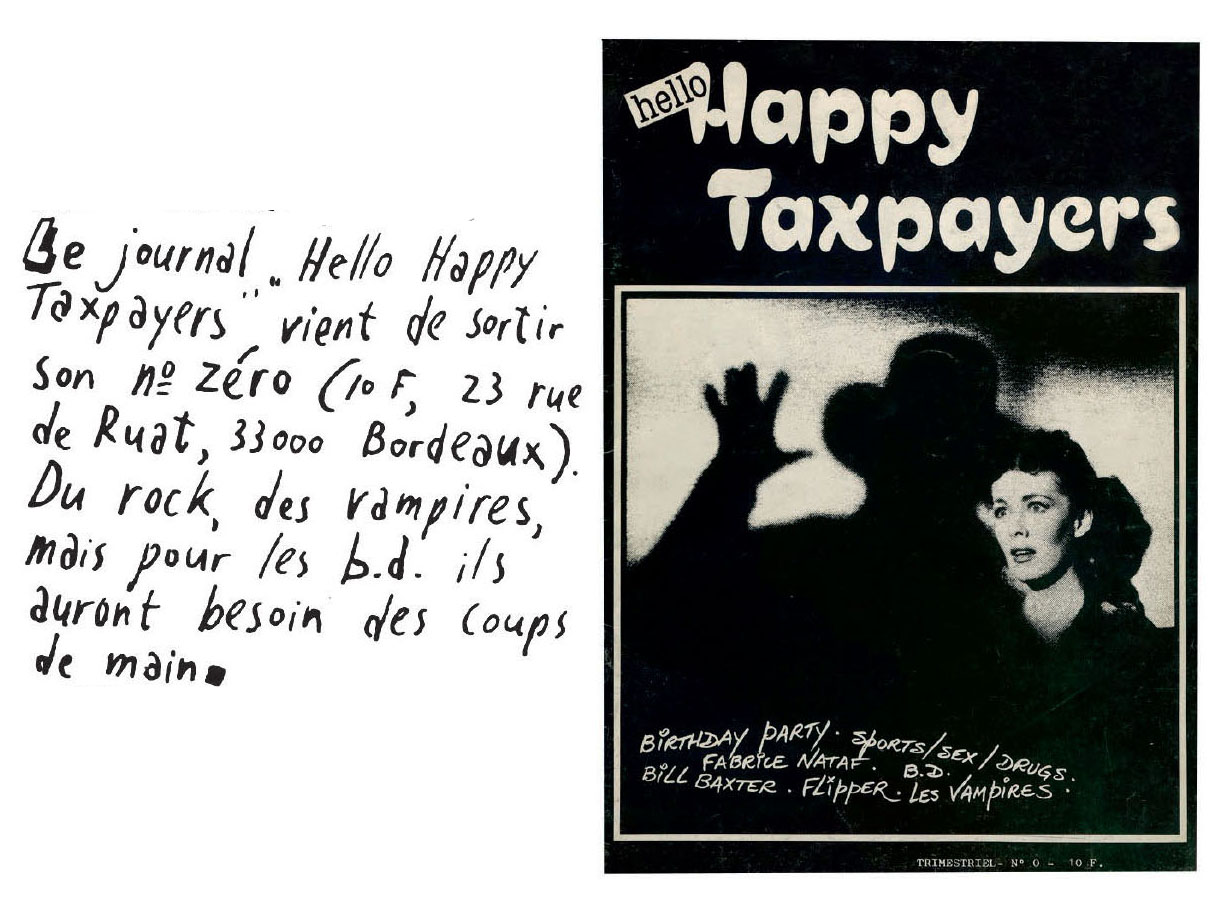 Le journal „Hello Happy
Taxpayers" vient de sortir
son nº zéro (10 F, 23 rue
de Ruat, 33000 Bordeaux).
Du rock, des vampires,
mais pour les b.d. ils
auront besoin des coups
de main
hello Happy
Taxpayers
BIRTHDAY PARTY. SPORTS/SEX/DRUGS.
FABRICE NATAF. B.D.
BILL BAXTER. FLIPPER. LES VAMPIRES.
TRIMESTRIEL- N° 0 - 10 F.